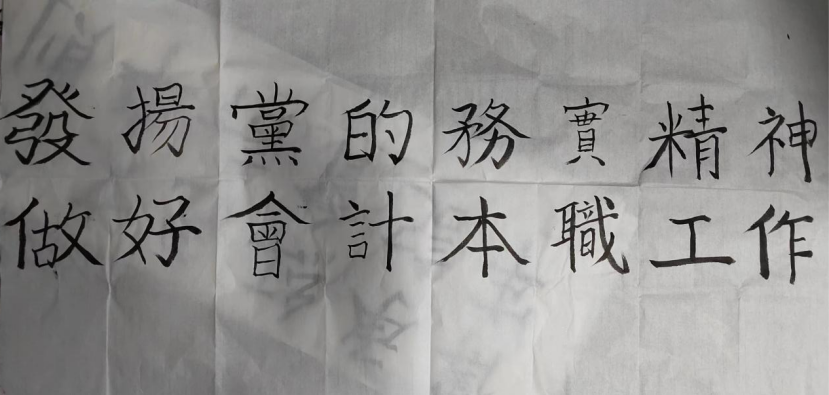 發揚黨的務實精神
做好會計本職工作